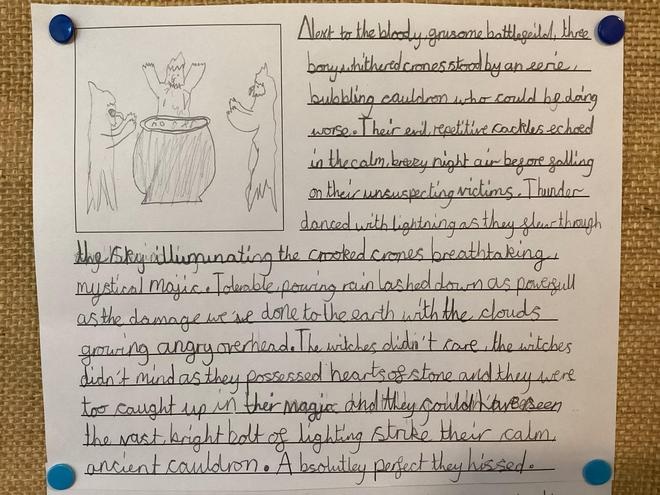 Next to the bloody, grusome battlegeild, three
bony whithered crones stood by an eerie,
bubbling cauldron who could be doing
worse. Their evil repetitive cackles echoed
in the calm, breezy night air before falling
on their unsuspecting victims. Thunder
danced with lightning as they flew through
the sky illuminating the crooked crones breathtaking,
mystical majic. Tolerable, pouring rain lashed down as powerfull
as the damage we've done to the earth with the clouds
growing angry overhead. The witches didn't care, the witches
didn't mind as they possessed hearts of stone and they were
too caught up in their magic and they could have seen
the vast, bright bolt of lighting strike their calm,
ancient cauldron. Absolutley perfect they hissed.